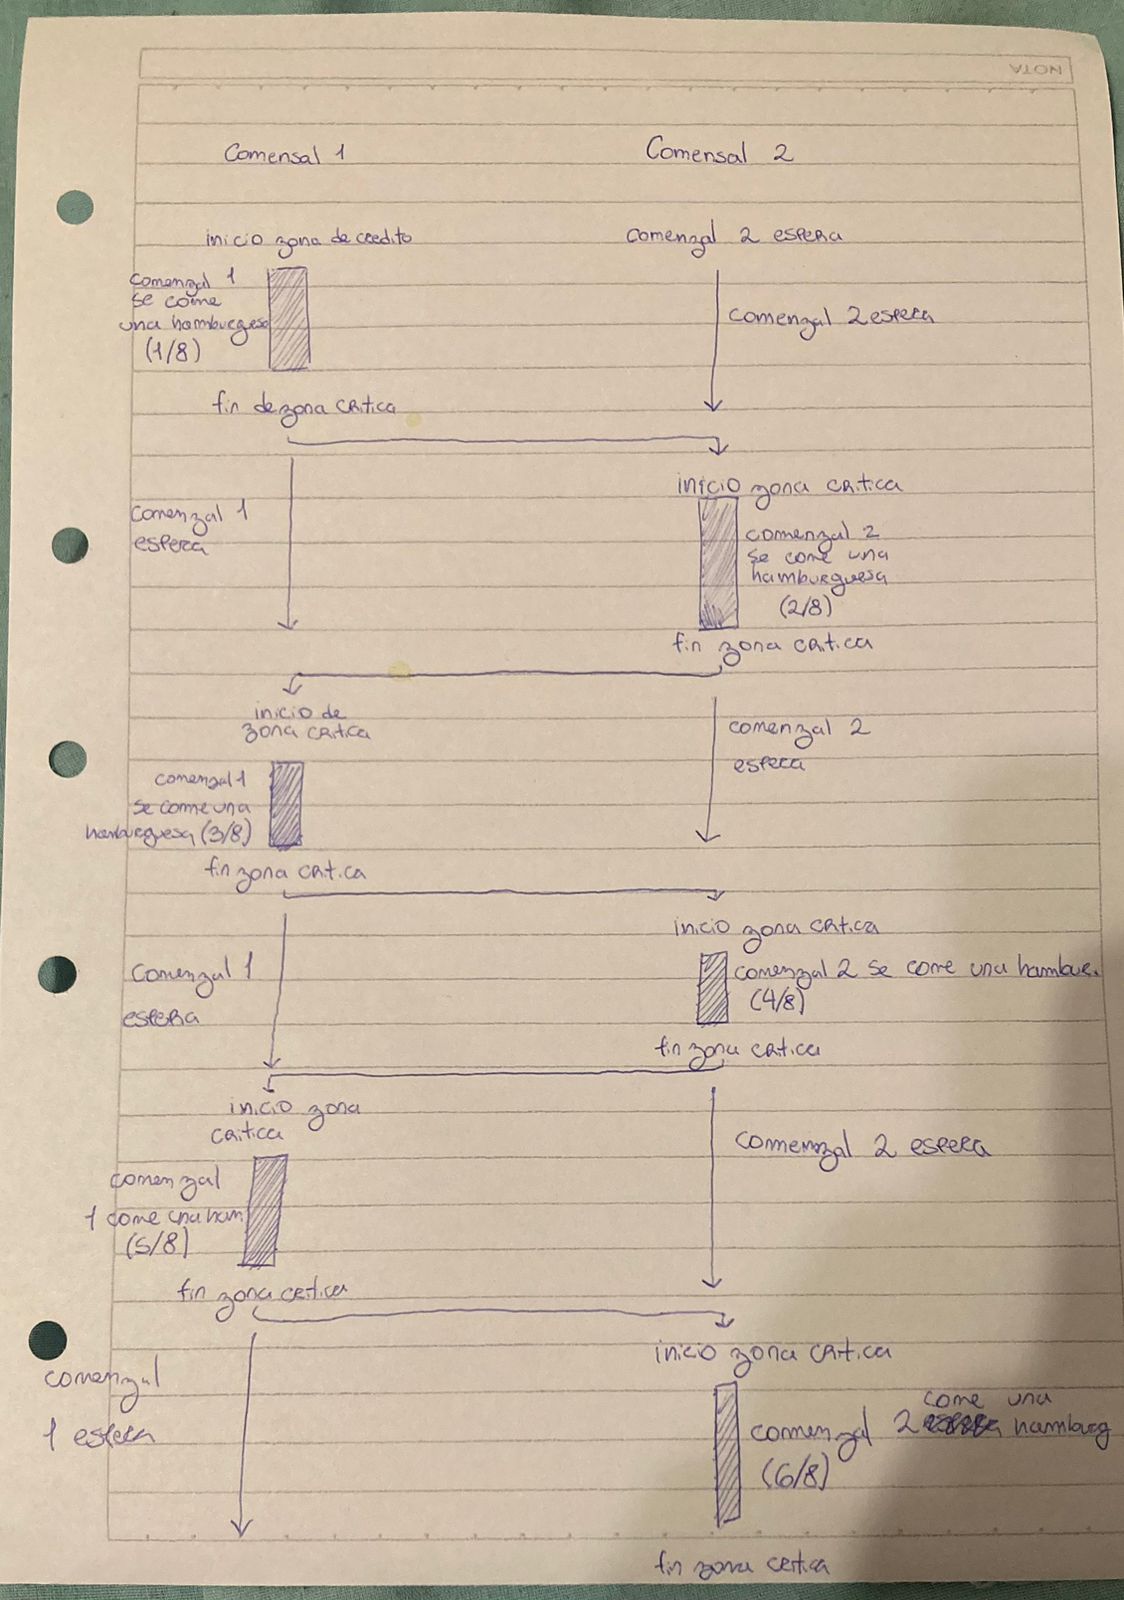 NOTA
Comensal 1
Comensal 2
inicio zona de credito
comenzal 2 espera
comenzal 1
se come
una hamburgesa
(1/8)
comenzal 2 espera
fin de zona critica
inicio zona critica
comenzal 1
espera
comenzal 2
se come una
hamburguesa
(2/8)
fin zona critica
inicio de
zona critica
comenzal 2
espera
comenzal 1
se come una
hamburguesa (3/8)
fin zona critica
inicio zona critica
comenzal 1
espera
comenzal 2 se come una hambur.
(4/8)
fin zona critica
inicio zona
critica
comenzal 2 espera
comenzal
1 come una ham
(5/8)
fin zona critica
inicio zona critica
comenzal
1 espera
come una
comenzal 2 hamburg
(6/8)
fin zona critica